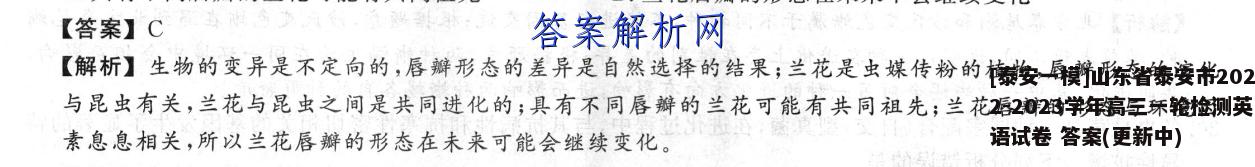 【答案】C
答案解析网
【解析】生物的变异是不定向的,唇瓣形态的差异是自然选择的结果;兰花是虫媒传粉的植物,唇瓣形态的演化
与昆虫有关,兰花与昆虫之间是共同进化的;具有不同唇瓣的兰花可能有共同祖先;兰花
素息息相关,所以兰花唇瓣的形态在未来可能会继续变化。
[泰安一模]山东省泰安市202
2-2023学年高三一轮检测英
语试卷 答案(更新中)